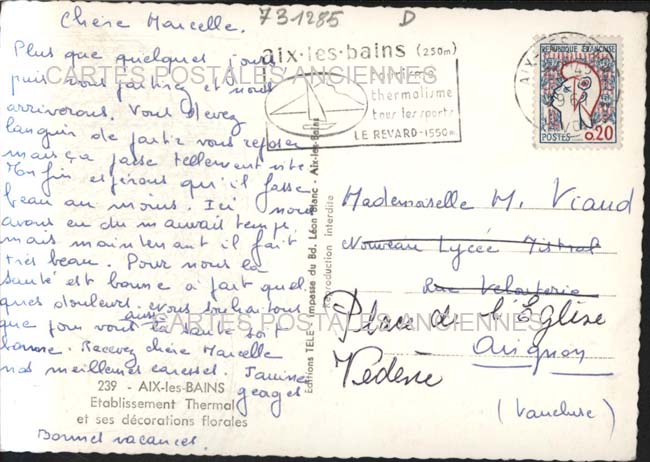 731285 D
Chère Marcelle.
Plus que quelques jours
puis vous partirez et nous
arriverons. Vous devez
languir de partir vous reposer
mais ça passe tellement vite
Enfin espérons qu'il fasse
beau au moins. Ici nous
avons eu du mauvais temps,
mais maintenant il fait
très beau. Pour nous la
santé est bonne à part quel
ques douleurs. Nous souhaitons
que pour vous aussi la santé soit
bonne. Recevez chère Marcelle
nos meilleures caresses.
Bonnes vacances.
239 - AIX-les-BAINS
Etablissement Thermal
et ses décorations florales
Editions TELE - Impasse du Bd. Léon Blanc - Aix-les-Bains
Reproduction interdite
aix·les·bains (250m)
thermalisme
tous les sports
LE REVARD-1550m
REPUBLIQUE FRANÇAISE
POSTES 0,20
Mademoiselle M. Viaud
Nouveau Lycée Mistral
Rue Velouterie
Place de l'Eglise
Avignon
Védène
(Vaucluse)
CARTES POSTALES ANCIENNES
CARTES POSTALES ANCIENNES